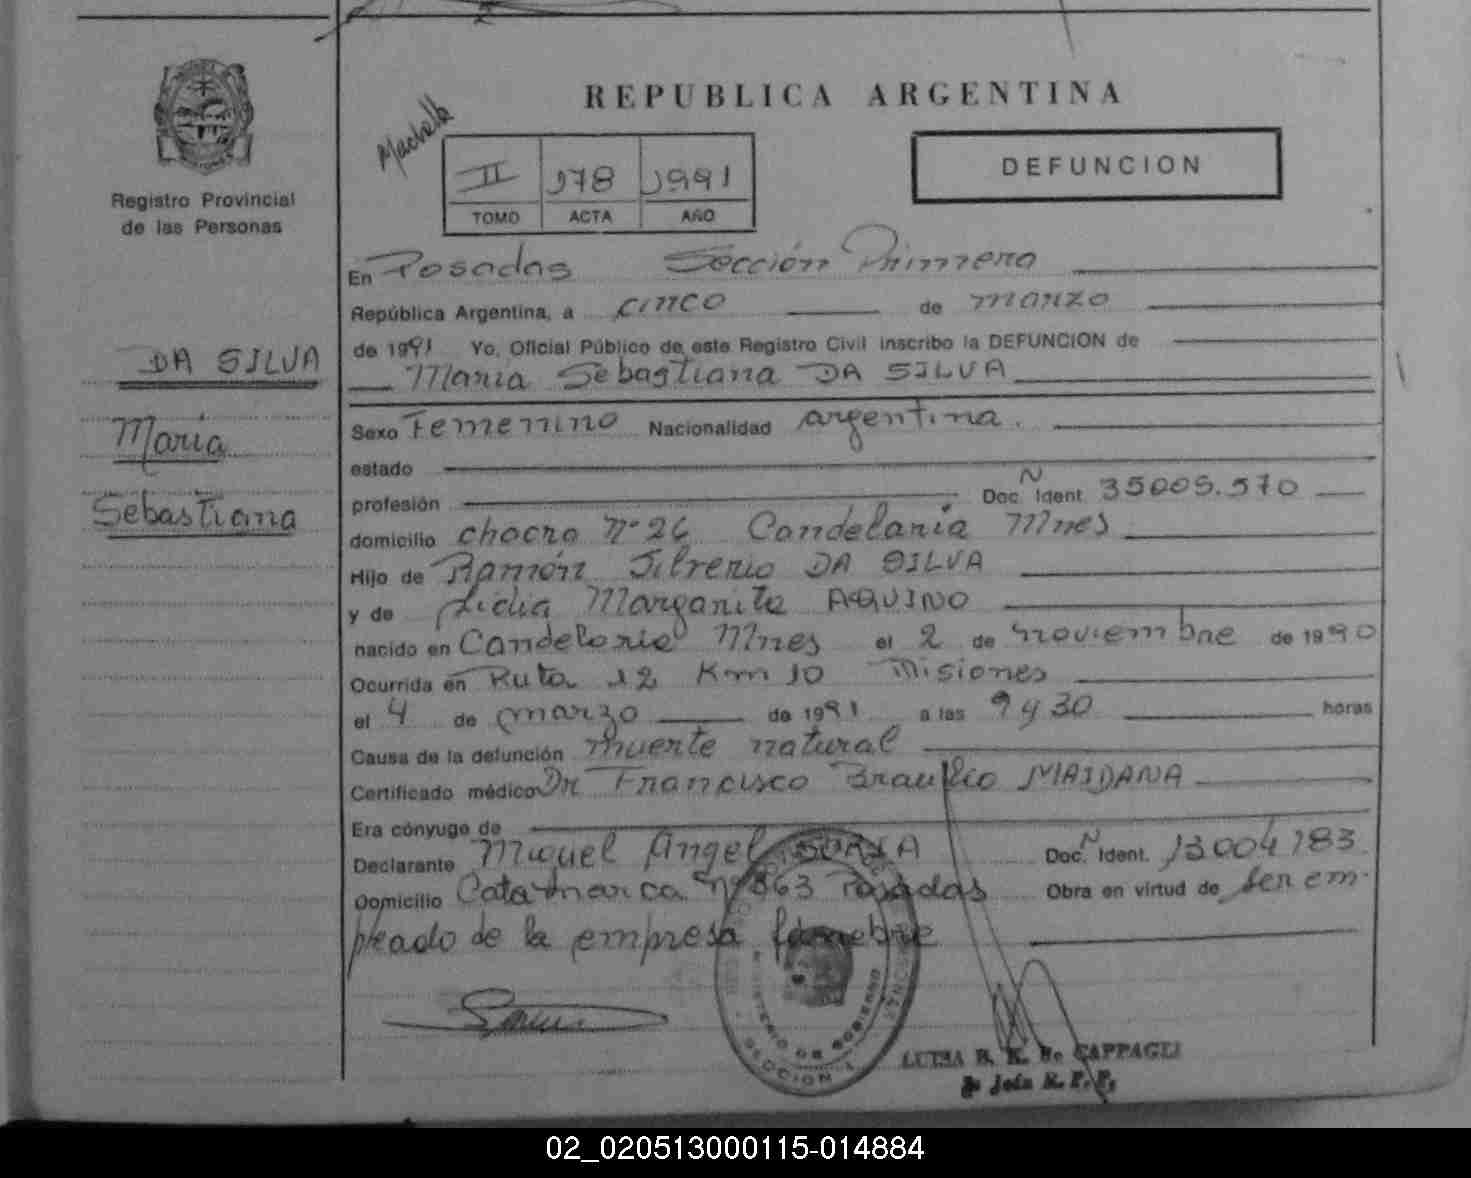 REPUBLICA ARGENTINA
II 178 1991
TOMO ACTA AÑO
DEFUNCION
Registro Provincial
de las Personas
En Posadas Sección Primera
República Argentina, a cinco de marzo
de 1991 Yo, Oficial Público de este Registro Civil inscribo la DEFUNCION de
María Sebastiana DA SILVA
DA SILVA
María
Sebastiana
Sexo Femenino Nacionalidad argentina.
estado
profesión Doc. Ident. N 35005.570
domicilio chacra Nº 26 Candelaria Mnes
Hijo de Ramón Silverio DA SILVA
y de Lidia Margarita AQUINO
nacido en Candelaria Mnes el 2 de noviembre de 1990
Ocurrida en Ruta 12 Km 10 Misiones
el 4 de marzo de 1991 a las 9 y 30 horas
Causa de la defunción muerte natural
Certificado médico Dr Francisco Braulio MAIDANA
Era cónyuge de
Declarante Miguel Angel SORIA Doc. Ident. N 13004183
Domicilio Catamarca Nº 863 Posadas Obra en virtud de ser em-
pleado de la empresa fúnebre
MINISTERIO DE GOBIERNO
SECCION 1
LUISA R. K. De CAPPAGLI
Jefa R. P. P.
02_020513000115-014884